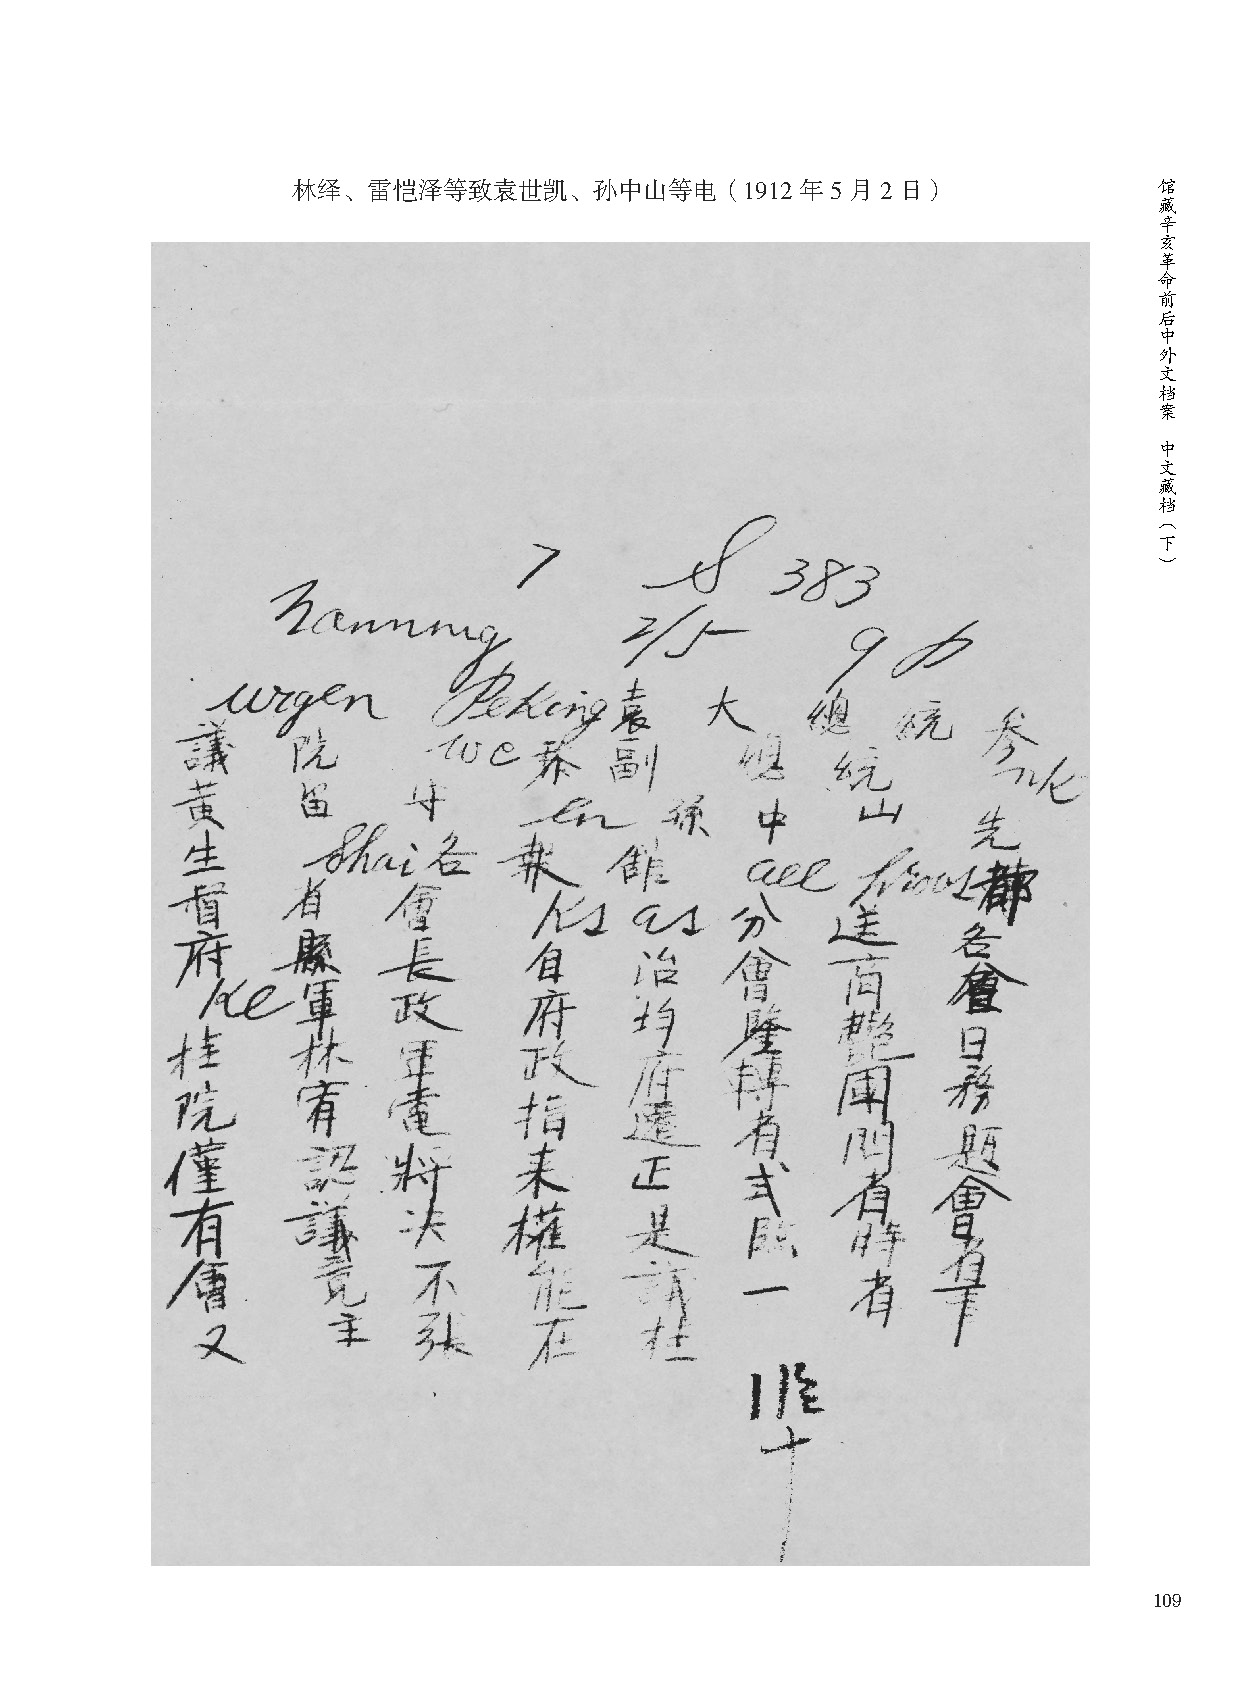 林绎、雷恺泽等致袁世凯、孙中山等电（1912年5月2日）
馆藏辛亥革命前后中外文档案 中文藏档（下）
7 S 383
Nanning 2/5 9 p
urgen Peking 袁大總統參
議院 we 黎副總統
黃留守 en 孫中山先
生 shai 各報館 all 都
督省會 ks as 分送各
府縣長自治會商會
ke 軍政府均鑒艷日
桂林軍政府轉團務
院宥電指還有問題
僅認將來正式有會
有議決權是臨時有
會竟不能請一者
又主張在杜
十
109